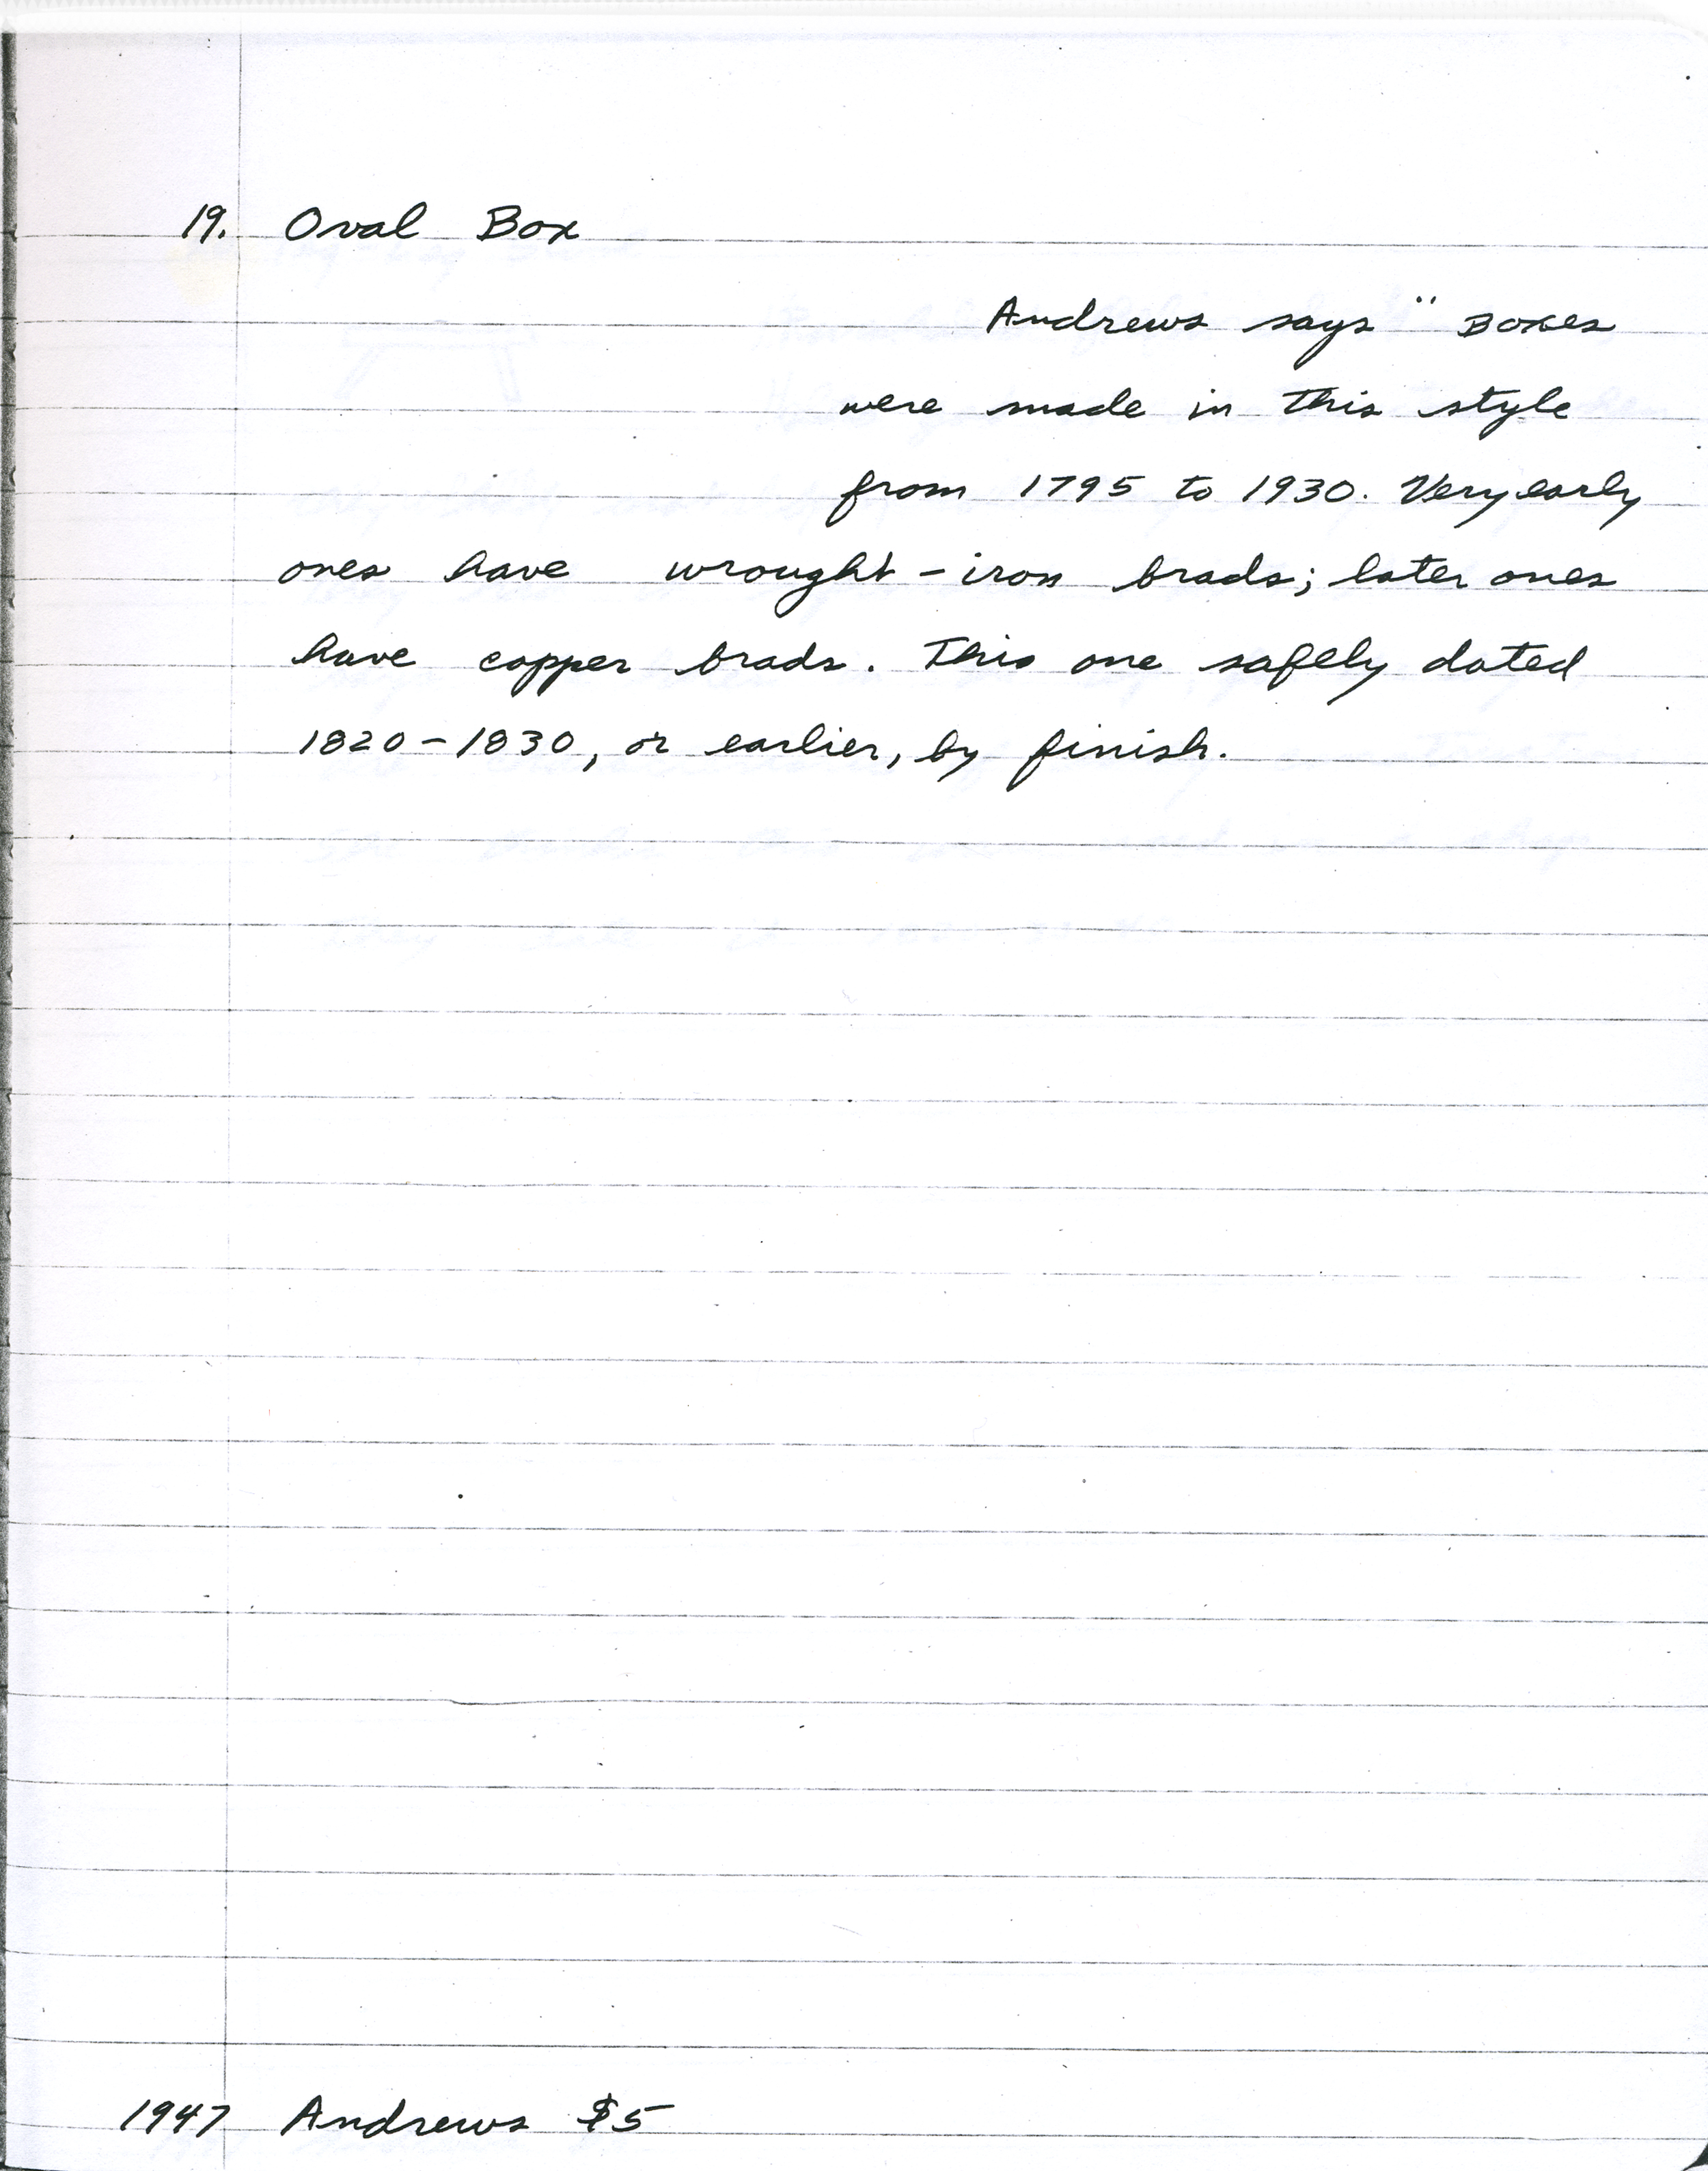 19. Oval Box
Andrews says " Boxes
were made in this style
from 1795 to 1930. Very early
ones have wrought-iron brads; later ones
have copper brads. This one safely dated
1820-1830, or earlier, by finish.
1947 Andrews $5